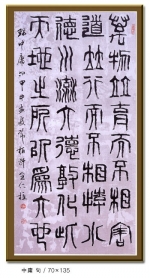 萬物並育而不相害
道並行而不相悖小
德川流大德敦化此
天地之所以爲大也
中庸 句 / 70×135